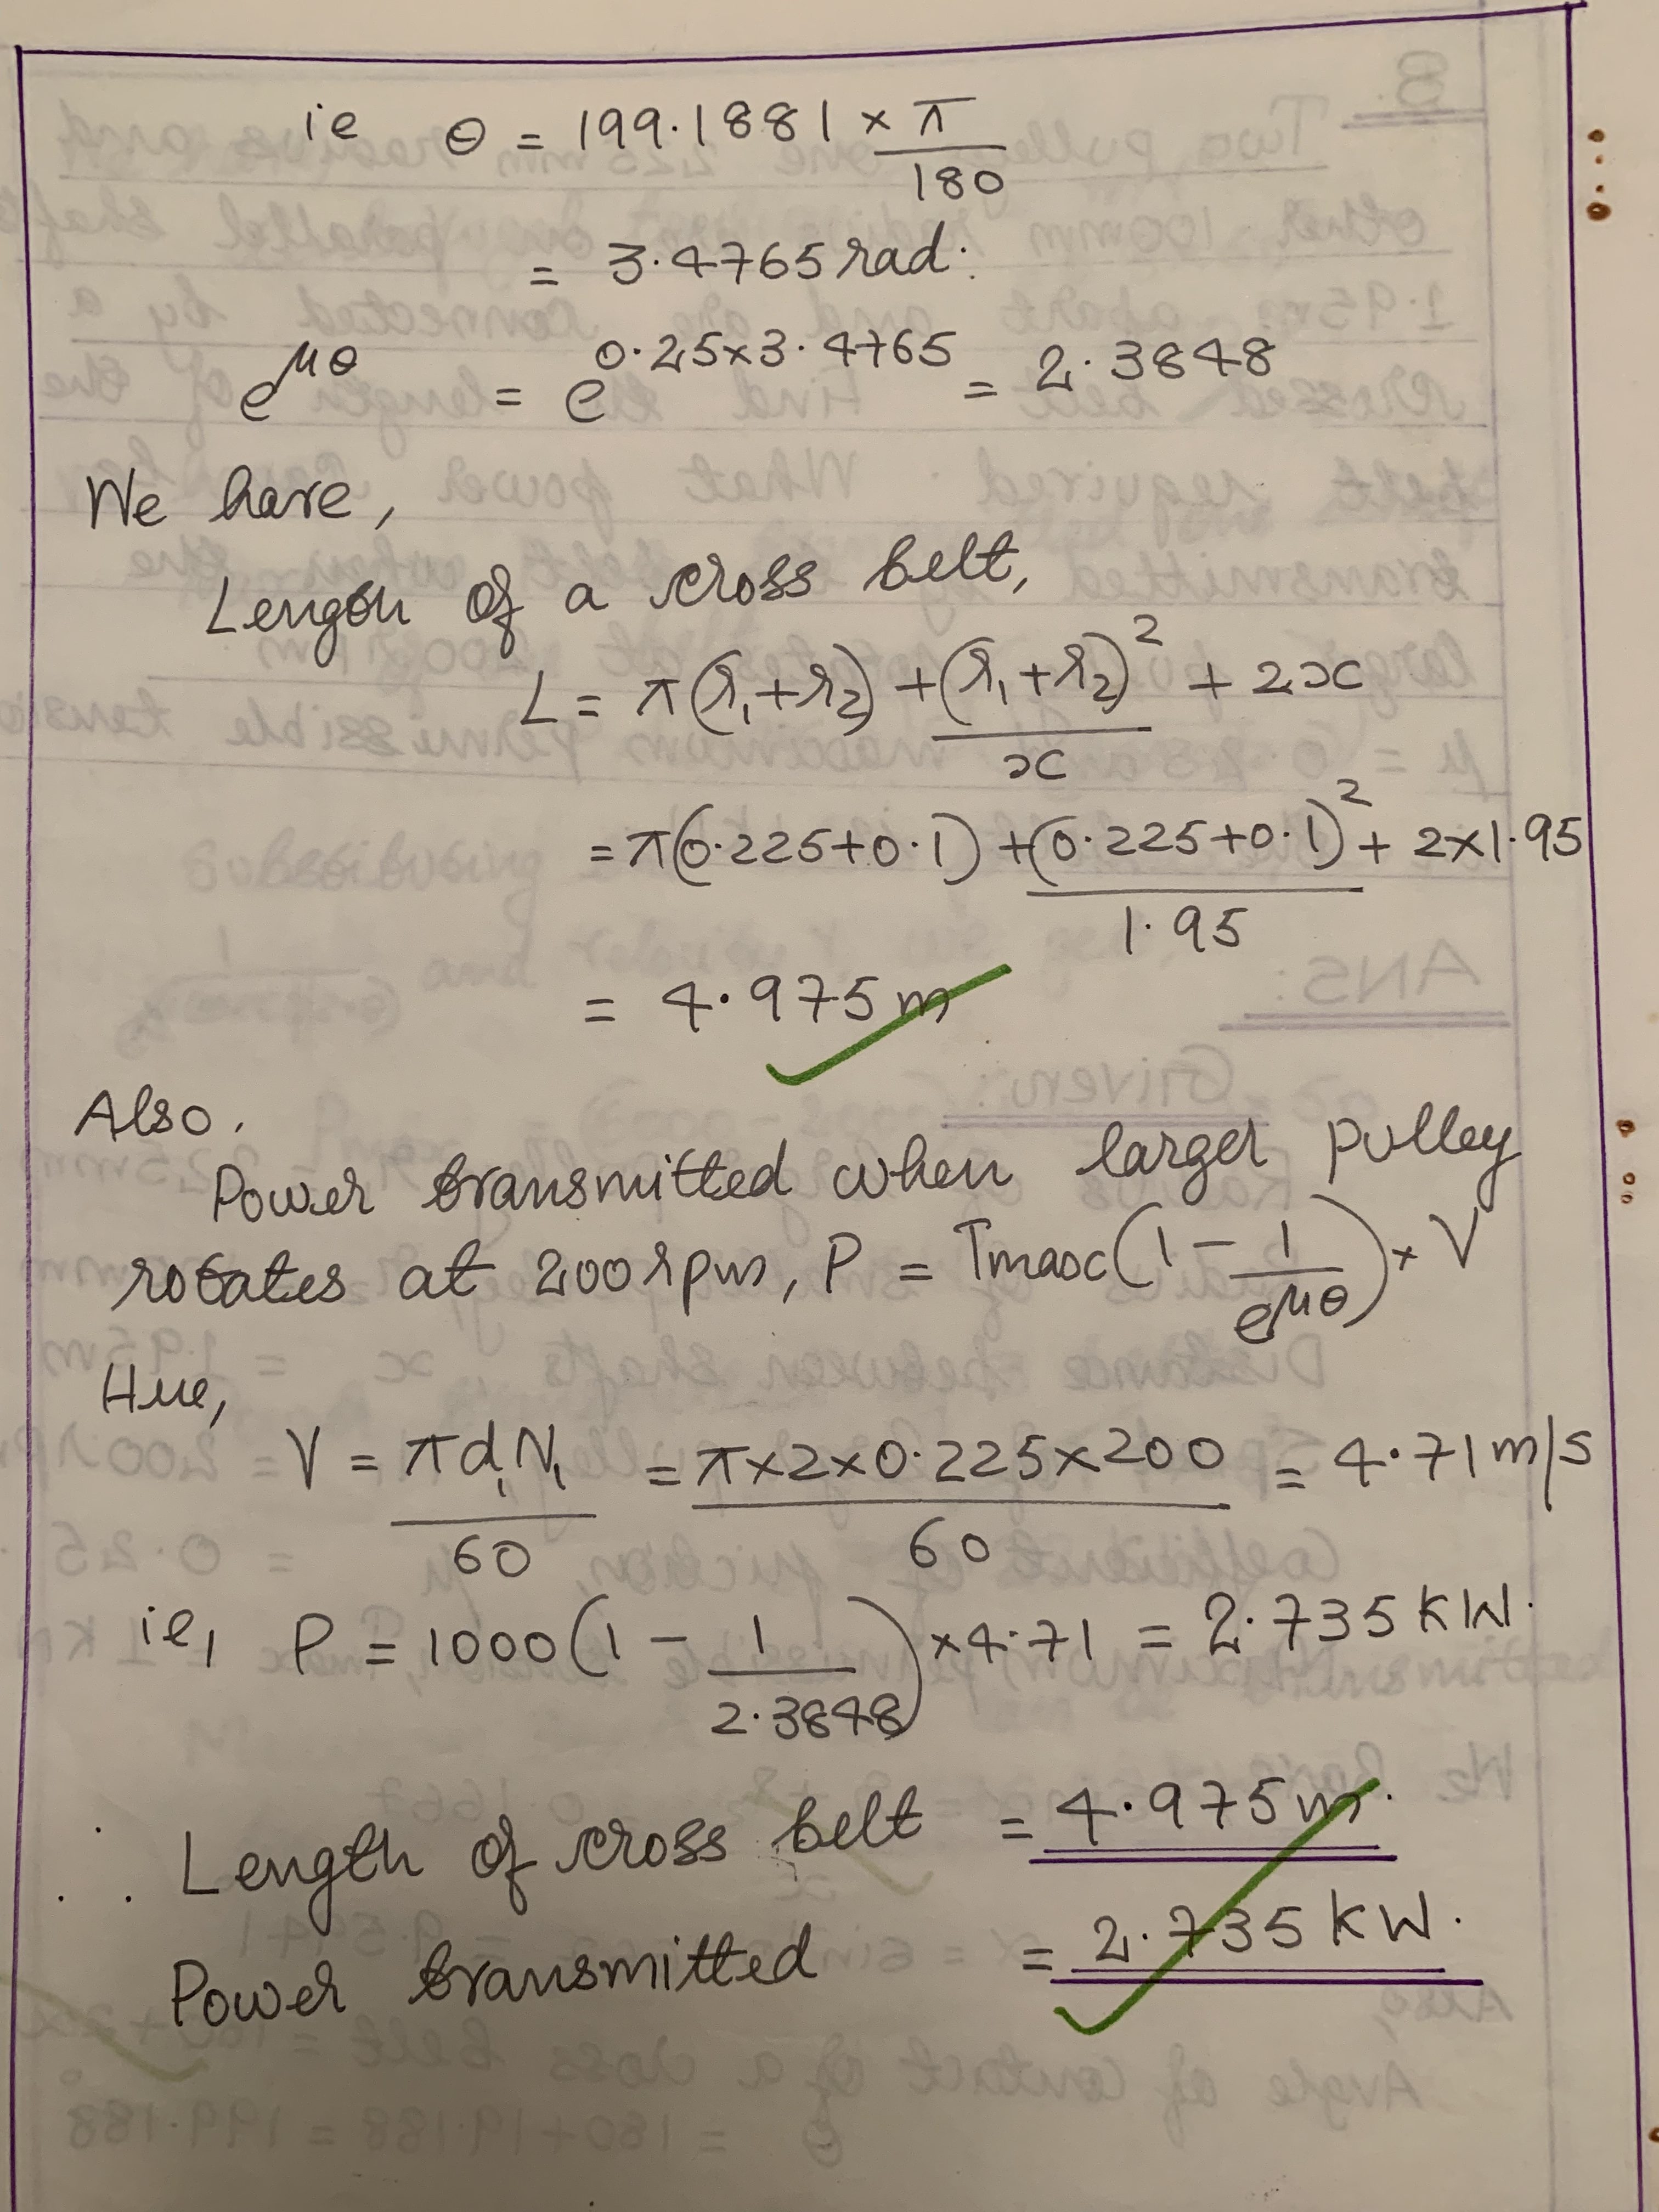 ie θ = 199.1881 × π/180
= 3.4765 rad.
e^μθ = e^0.25×3.4765 = 2.3848
We have,
Length of a cross belt,
L = π(r₁+r₂) + (r₁+r₂)²/x + 2x
= π(0.225+0.1) + (0.225+0.1)²/1.95 + 2×1.95
= 4.975 m
Also,
Power transmitted when larger pulley
rotates at 200 rpm, P = Tmax(1 − 1/e^μθ) × V
Here,
V = πd₁N₁/60 = π×2×0.225×200/60 = 4.71 m/s
ie, P = 1000(1 − 1/2.3848) × 4.71 = 2.735 KW.
∴ Length of cross belt = 4.975 m.
Power transmitted = 2.735 KW.